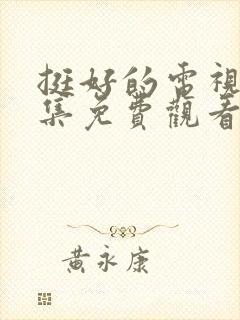 挺好的電視
集免費觀看
黃永康